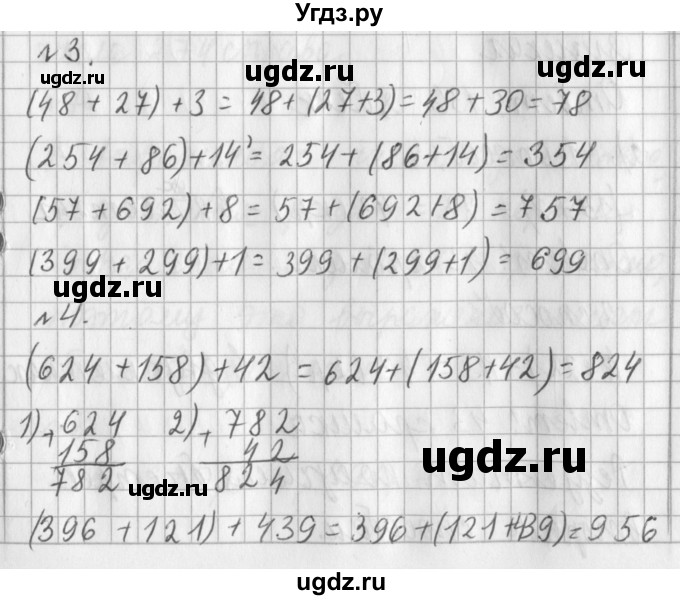 Угдз.ру
ugdz.ru ugdz.ru
N 3.
(48 + 27) + 3 = 48 + (27+3) = 48 + 30 = 78
ugdz.ru
(254 + 86) + 14 = 254 + (86+14) = 354
(57 + 692) + 8 = 57 + (692+8) = 757
(399 + 299) + 1 = 399 + (299+1) = 699
ugdz.ru ugdz.ru
N 4.
(624 + 158) + 42 = 624 + (158+42) = 824
1) + 624 2) + 782
158 42
782 824
ugdz.ru ugdz.ru
(396 + 121) + 439 = 396 + (121+439) = 956
ugdz.ru